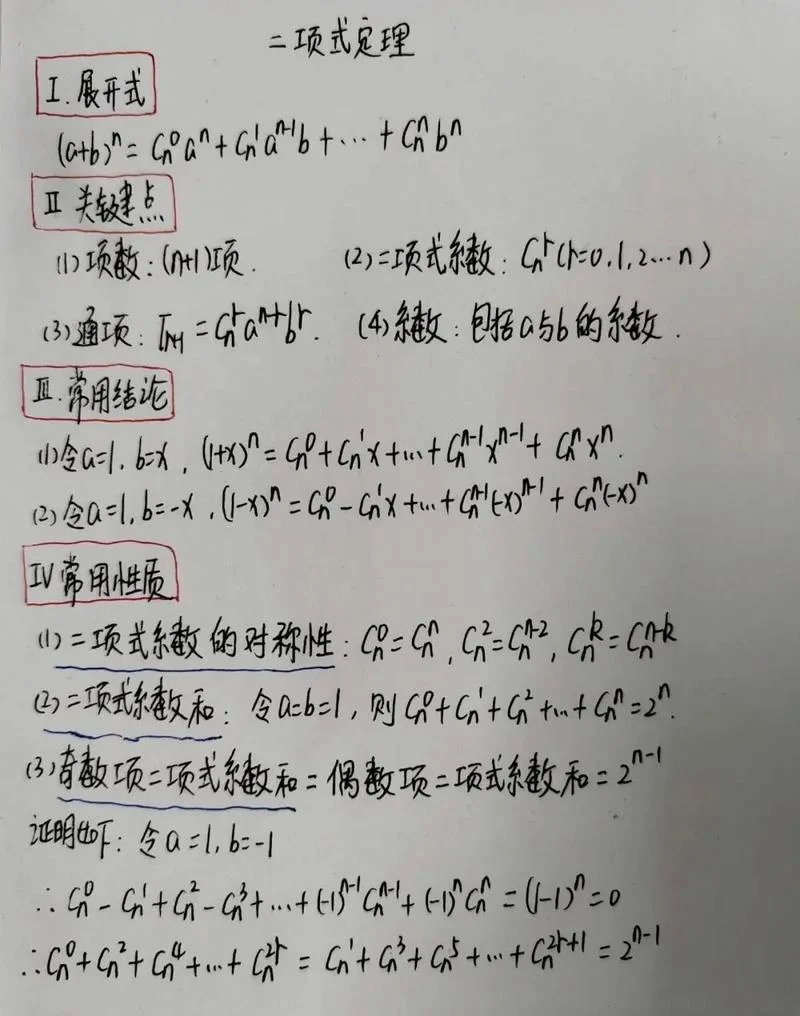 二项式定理
I. 展开式
(a+b)ⁿ = Cₙ⁰aⁿ + Cₙ¹aⁿ⁻¹b + ⋯ + Cₙⁿbⁿ
II 关键点
(1) 项数: (n+1)项. (2) 二项式系数: Cₙʳ(r=0,1,2⋯n)
(3) 通项: Tᵣ₊₁ = Cₙʳaⁿ⁻ʳbʳ. (4) 系数: 包括a与b的系数.
III. 常用结论
(1) 令a=1, b=x, (1+x)ⁿ = Cₙ⁰ + Cₙ¹x + … + Cₙⁿ⁻¹xⁿ⁻¹ + Cₙⁿxⁿ.
(2) 令a=1, b=-x, (1-x)ⁿ = Cₙ⁰ - Cₙ¹x + … + Cₙⁿ⁻¹(-x)ⁿ⁻¹ + Cₙⁿ(-x)ⁿ
IV 常用性质
(1) 二项式系数的对称性: Cₙ⁰ = Cₙⁿ, Cₙ² = Cₙⁿ⁻², Cₙᵏ = Cₙⁿ⁻ᵏ
(2) 二项式系数和: 令a=b=1, 则Cₙ⁰ + Cₙ¹ + Cₙ² + … + Cₙⁿ = 2ⁿ.
(3) 奇数项二项式系数和 = 偶数项二项式系数和 = 2ⁿ⁻¹
证明如下: 令a=1, b=-1
∴ Cₙ⁰ - Cₙ¹ + Cₙ² - Cₙ³ + … + (-1)ⁿ⁻¹Cₙⁿ⁻¹ + (-1)ⁿCₙⁿ = (1-1)ⁿ = 0
∴ Cₙ⁰ + Cₙ² + Cₙ⁴ + … + Cₙ²ʳ = Cₙ¹ + Cₙ³ + Cₙ⁵ + … + Cₙ²ʳ⁺¹ = 2ⁿ⁻¹